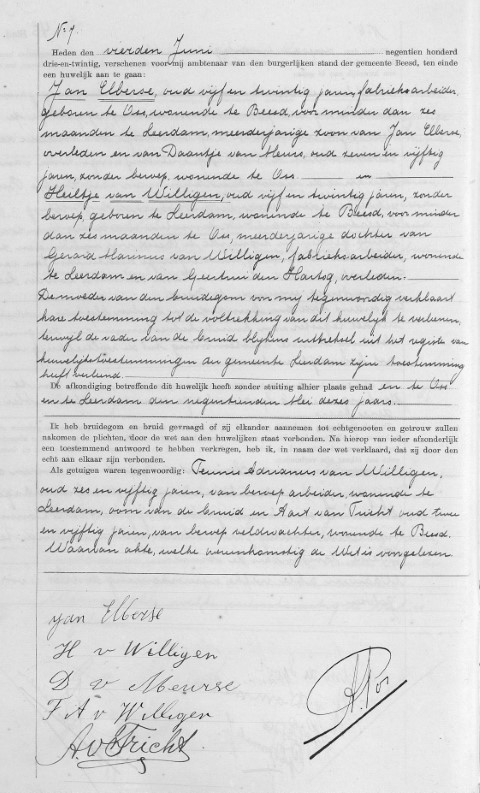 No 7.
Heden den vierden Juni negentien honderd
drie-en-twintig, verschenen voor mij ambtenaar van den burgerlijken stand der gemeente Beesd, ten einde
een huwelijk aan te gaan:
Jan Elberse, oud vijf en twintig jaren, fabrieksarbeider,
geboren te Oss, wonende te Beesd, voor minder dan zes
maanden te Leerdam, meerderjarige zoon van Jan Elberse,
overleden en van Daantje van Meurs, oud zeven en vijftig
jaren, zonder beroep, wonende te Oss en
Heiltje van Willigen, oud vijf en twintig jaren, zonder
beroep, geboren te Leerdam, wonende te Beesd, voor minder
dan zes maanden te Oss, meerderjarige dochter van
Gerard Marinus van Willigen, fabrieksarbeider, wonende
te Leerdam en van Geertrui den Hartog, overleden.
De moeder van den bruidegom voor mij tegenwoordig verklaart
hare toestemming tot de voltrekking van dit huwelijk te verleenen,
terwijl de vader van de bruid blijkens uittreksel uit het register van
huwelijkstoestemmingen der gemeente Leerdam zijn toestemming
heeft verleend.
De afkondiging betreffende dit huwelijk heeft zonder stuiting alhier plaats gehad en te Oss
en te Leerdam den negentienden Mei dezes jaars.
Ik heb bruidegom en bruid gevraagd of zij elkander aannemen tot echtgenooten en getrouw zullen
nakomen de plichten, door de wet aan den huwelijken staat verbonden. Na hierop van ieder afzonderlijk
een toestemmend antwoord te hebben verkregen, heb ik, in naam der wet verklaard, dat zij door den
echt aan elkaar zijn verbonden.
Als getuigen waren tegenwoordig: Teunis Adrianus van Willigen,
oud zes en vijftig jaren, van beroep arbeider, wonende te
Leerdam, oom van de bruid en Aart van Tricht oud twee
en vijftig jaren, van beroep veldwachter, wonende te Beesd.
Waarvan akte, welke overeenkomstig de Wet is voorgelezen
Jan Elberse
H v Willigen
D v Meurse
T A v Willigen
A. v Tricht
A. Pos